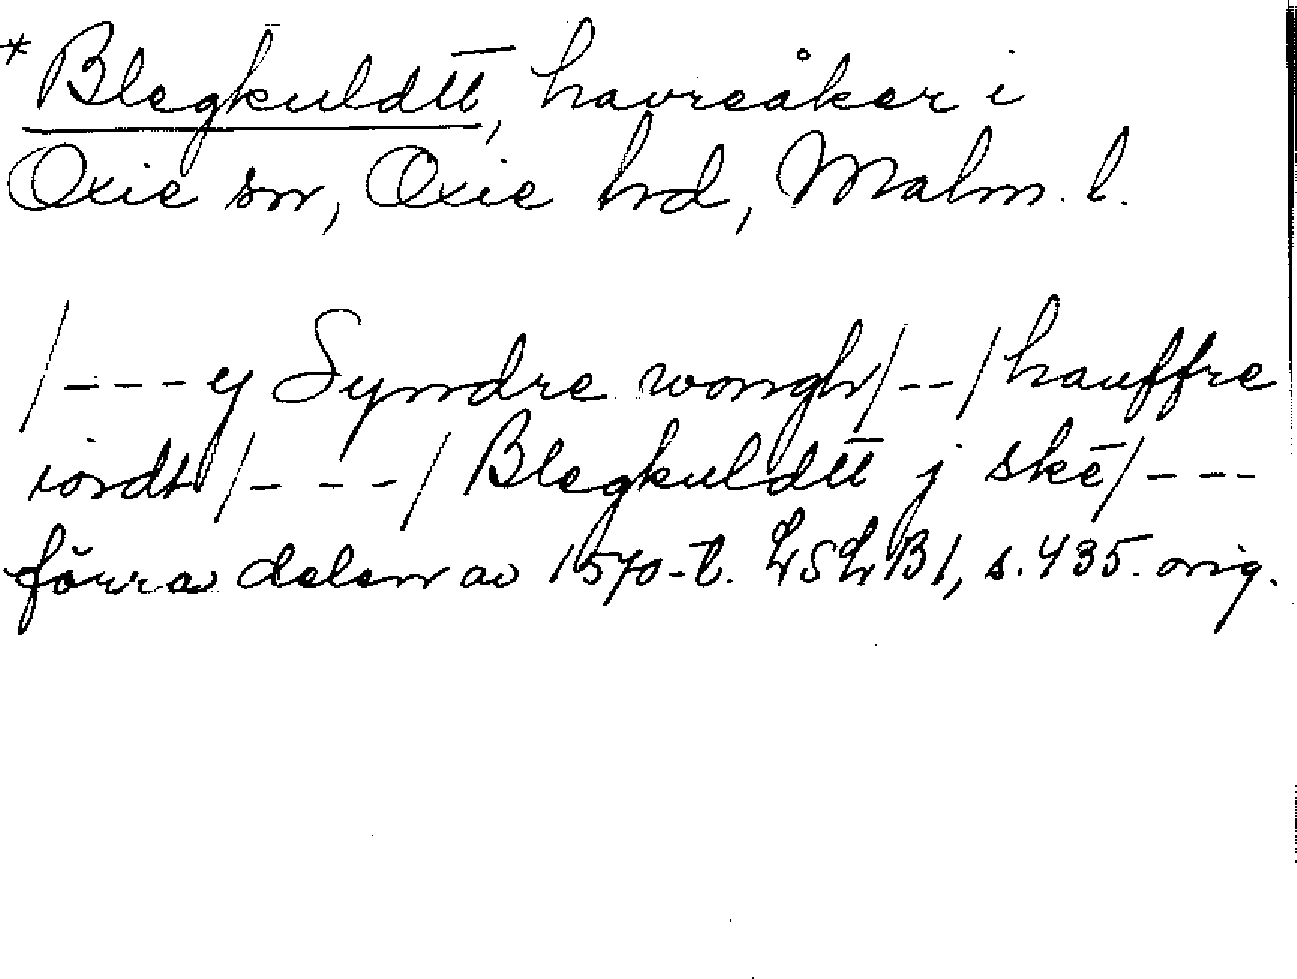 *Blegkuldtt̅, havreåker i
Oxie sn, Oxie hd, Malm. l.
/---y Syndre wongh/--/hauffre
iordt/---/Blegkuldtt̅ j skē/---
förra delen av 1570-t. LSLB1, s. 435. orig.